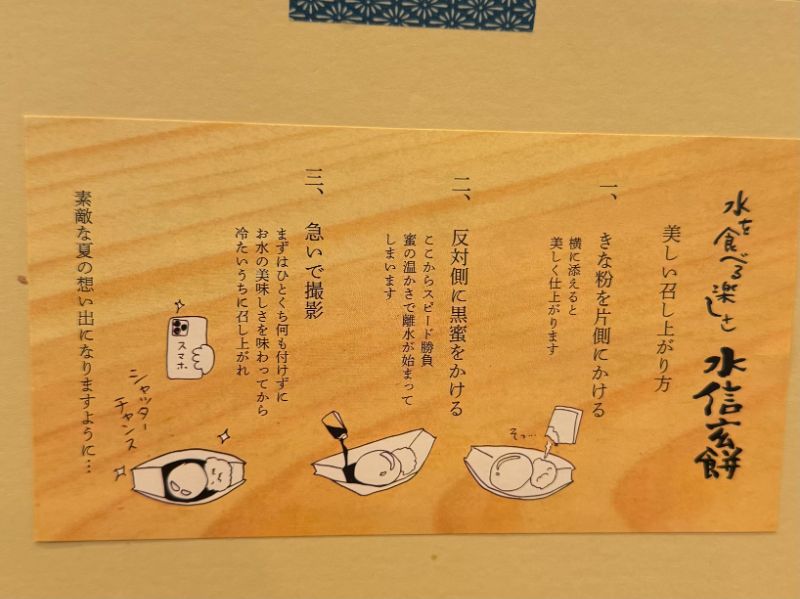 水を食べる楽しさ 水信玄餅
美しい召し上がり方
一、きな粉を片側にかける
横に添えると
美しく仕上がります
そっ…
二、反対側に黒蜜をかける
ここからスピード勝負
蜜の温かさで離水が始まって
しまいます
三、急いで撮影
まずはひとくち何も付けずに
お水の美味しさを味わってから
冷たいうちに召し上がれ
スマホ
シャッター
チャンス
素敵な夏の想い出になりますように…